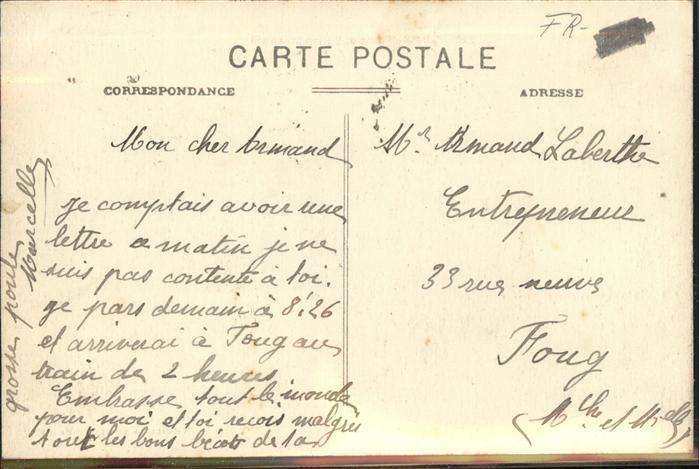 FR-
CARTE POSTALE
CORRESPONDANCE
ADRESSE
Mon cher Armand
Je comptais avoir une
lettre ce matin je ne
suis pas contente à toi.
Je pars demain à 8h26
et arriverai à Foug au
train de 2 heures
Embrasse tout le monde
pour moi et toi reçois malgrés
tout les bons bécots de ta
grosse poule
Marcelle
Mr Armand Laberthe
Entrepreneur
33 rue neuve
Foug
(Mthe et Mlle)